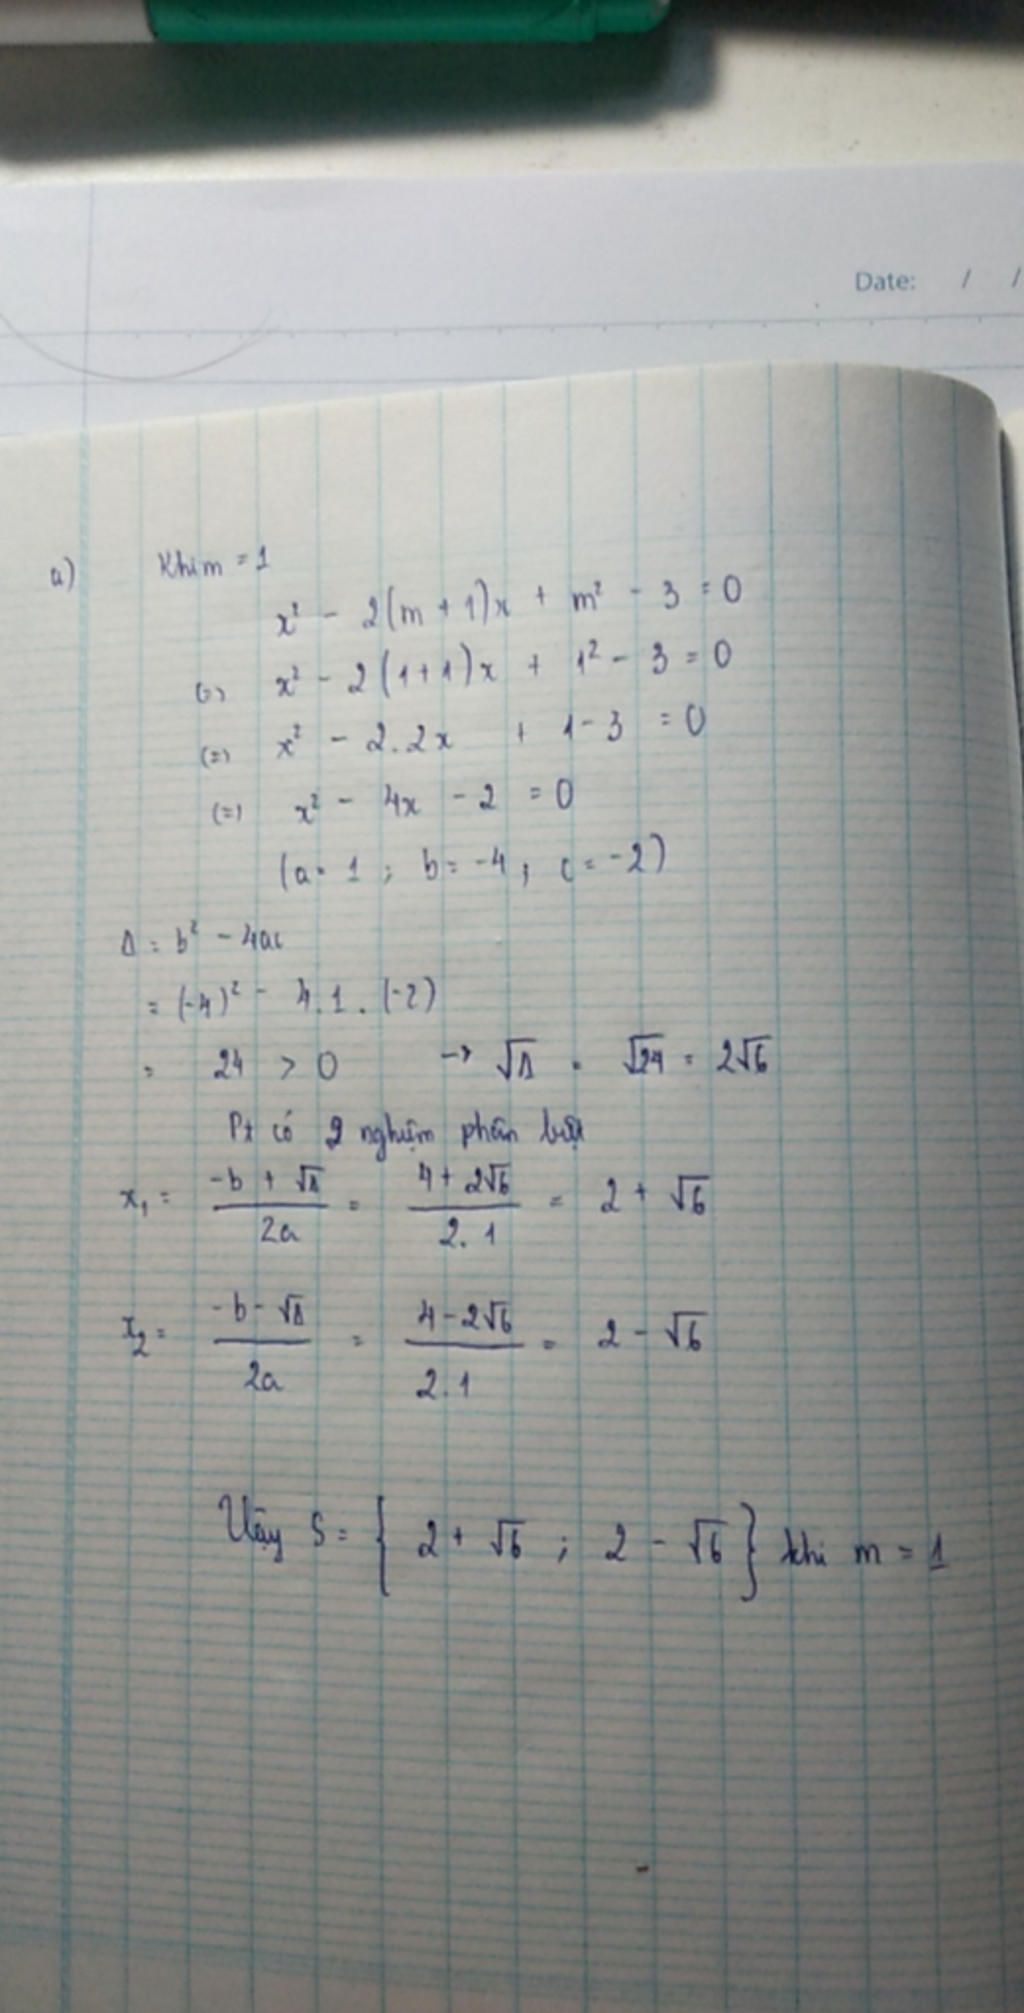 Date: / /
a) Khi m = 1
x² - 2(m + 1)x + m² - 3 = 0
(=) x² - 2(1+1)x + 1² - 3 = 0
(=) x² - 2.2x + 1-3 = 0
(=) x² - 4x - 2 = 0
(a = 1 ; b = -4 ; c = -2)
Δ = b² - 4ac
= (-4)² - 4.1.(-2)
= 24 > 0 → √Δ = √24 = 2√6
Pt có 2 nghiệm phân biệt
x₁ = (-b + √Δ)/2a = (4 + 2√6)/2.1 = 2 + √6
x₂ = (-b - √Δ)/2a = (4 - 2√6)/2.1 = 2 - √6
Vậy S = { 2 + √6 ; 2 - √6 } khi m = 1